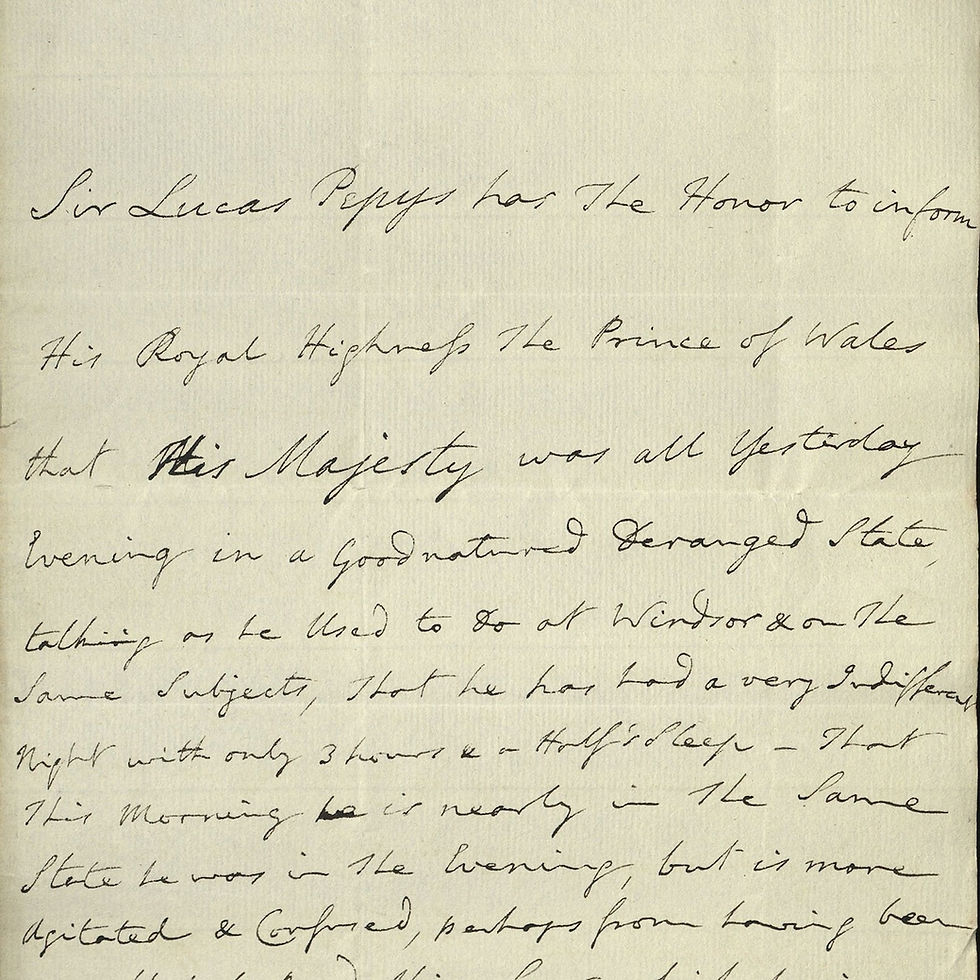 Sir Lucas Pepys has The Honor to inform
His Royal Highness The Prince of Wales
that His Majesty was all Yesterday
Evening in a Goodnatured Deranged State,
talking as he Used to Do at Windsor & on The
Same Subjects, That he has had a very Indifferent
Night with only 3 hours & a Half's Sleep – That
This Morning he is nearly in The Same
State he was in The Evening, but is more
Agitated & Confused, perhaps from having been